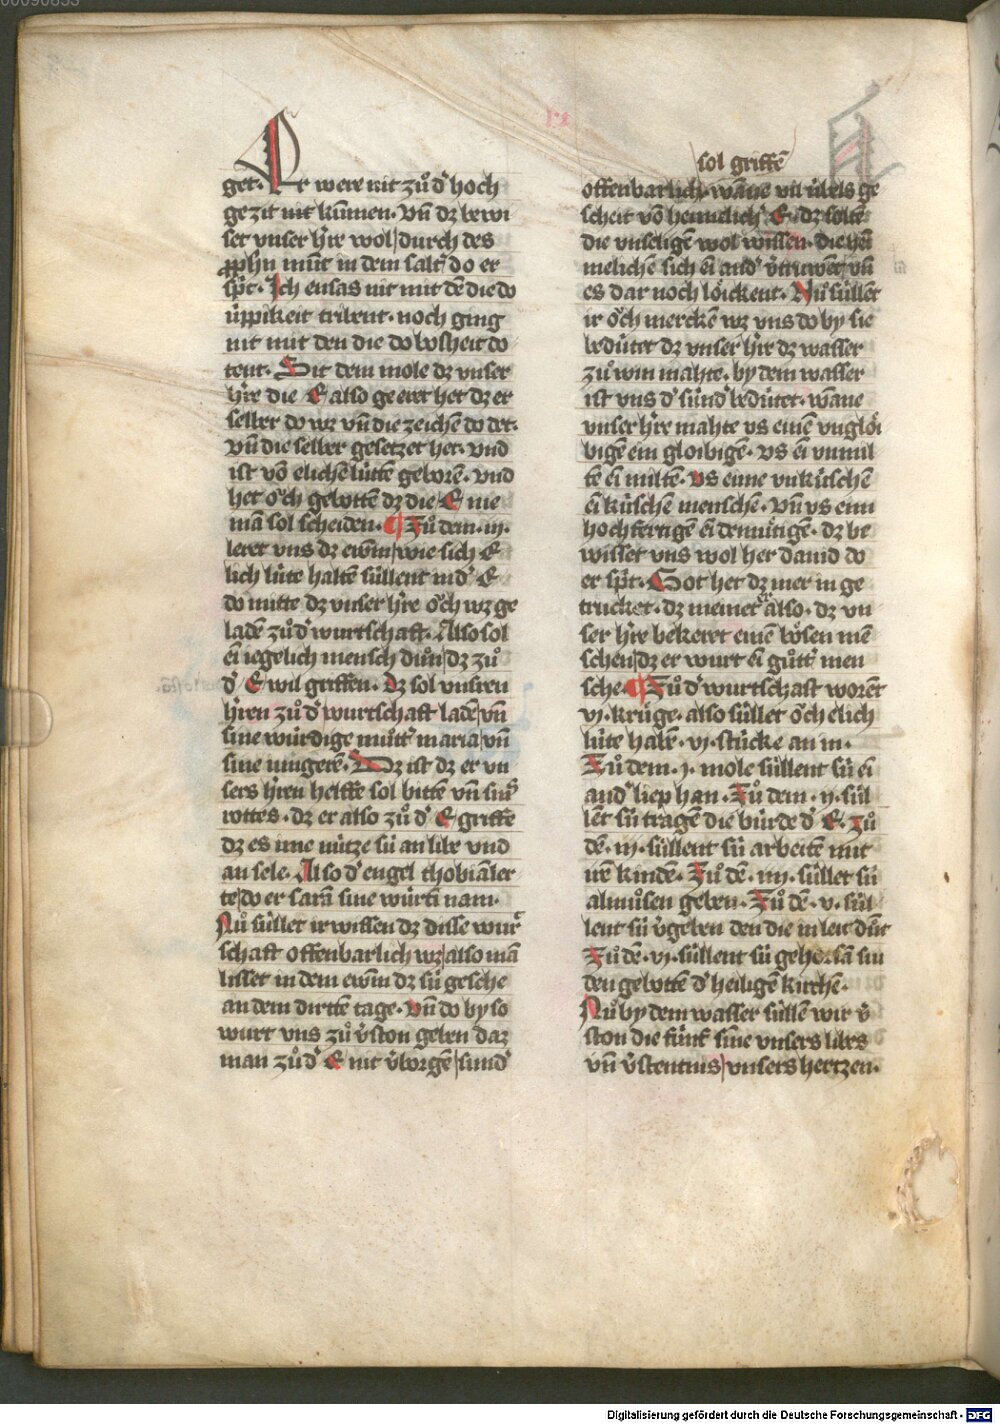 get. Er were nit zuͦ d' hoch
gezit nit kūmen. Vn̄ dz bewi
set vnser h're wol durch des
ꝓphn mūt in dem salt' do er
sp̄t. Ich ensas nit mit dē die do
v́ppikeit tribent. noch ging
nit mit den die do bosheit do
tent. Sit dem mole dz vnser
h're die E also geeret het dz er
selber do wz vn̄ die zeichē do det.
vn̄ die selber gesetzet het. vnd
ist vō elichē lúttē geborē. vnd
het oͧch gebottē dz die E nie
mā sol scheiden. ¶ Zuͦ dem .iij.
leret vns dz ewm̄ wie sich E
lich lúte haltē súllent in d' E
do mitte dz vnser h're oͧch wz ge
ladē zuͦ d' wurtschaft. Also sol
ei iegelich mensch duͦn dz zuͦ
d' E wil griffen. Dz sol vnsren
h'ren zuͦ d' wurtschaft ladē vn̄
sine wúrdige muͦtt' maria vn̄
sine iungerē. Dz ist dz er vn
sers h'ren helffe sol bittē vn̄ sin'
rottes. dz er also zuͦ d' E griffe
dz es ime nútze sú an libe vnd
an sele. Also d' engel thobiā ler
te do er sarā sine wúrtī nam.
Nuͦ súllet ir wissen dz disse wur'
schaft offenbarlich wz also mā
lisset in dem ewm̄ dz sú gesche
an dem dirttē tage. Vn̄ do by so
wurt vns zuͦ v'ston geben daz
man zuͦ d' E nit v'borgē sund'
sol griffē
offenbarlich. wāne vil úbels ge
scheit vō heimelich' E. dz soltē
die vnseligē wol wissen. die hei
melichē sich ei and' v'truwēt vn̄
es dar noch loͤickent. Nuͦ súllēt
ir oͧch merckē wz vns do by sie
bedútet dz vnser h're dz wasser
zuͦ win mahte. by dem wasser
ist vns d' súnd' bedútet. wāne
vnser h're mahte vs einē vngloͤi
bigē ein gloibigē. vs ei vnmil
tē ei miltē. vs eime vnkúschē
ei kúschē menschē. vn̄ vs eim
hochfertigē ei demútigē. dz be
wisset vns wol her dauid do
er sp̄t. Got het dz mer in ge
trucket. dz meinet er also. dz vn
ser h're bekeret einē boͤsen mē
schen dz er wurt ei guͦtt' men
sche. ¶ Zuͦ d' wurtschaft worēt
vj. kruͤge. also súllēt oͧch elich
lúte habē .vj. stúcke an in.
Zuͦ dem .j. mole súllent sú ei
and' liep han. Zuͦ dem .ij. súl
lēt sú tragē die búrde d' E. Zuͦ
dē .iij. súllent sú arbeitē mit
irē kindē. Zuͦ dē .iiij. súllēt sú
almuͦsen geben. Zuͦ dē .v. súl
lent sú v'geben den die in leit duͦnt
Zuͦ dē .vj. súllent sú gehorsā sin
den gebottē d' heiligē kirchē.
Nuͦ by dem wasser súllēt wir v'
ston die fúnf sinne vnsers libes
vn̄ v'stentnis vnsers hertzen.
Digitalisierung gefördert durch die Deutsche Forschungsgemeinschaft - DFG